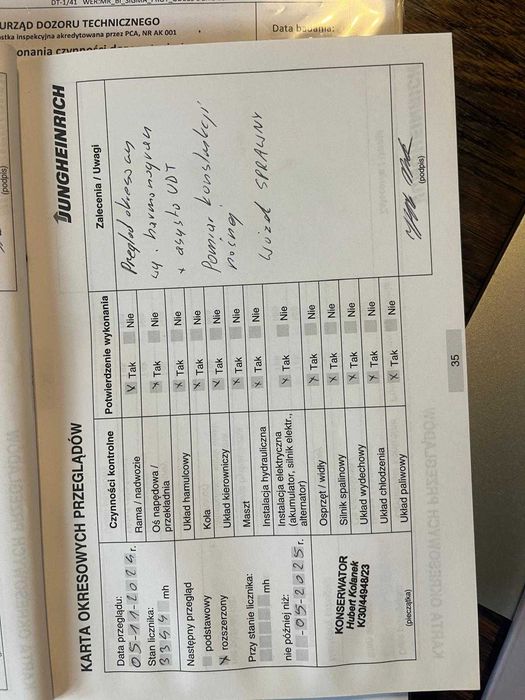 DT-1/41
URZĄD DOZORU TECHNICZNEGO
stka inspekcyjna akredytowana przez PCA, NR AK 001
Data badania:
(podpis)
KARTA OKRESOWYCH PRZEGLĄDÓW
JUNGHEINRICH
Data przeglądu:
05-11-2024 r.
Stan licznika:
3354 mh
Następny przegląd
podstawowy
X rozszerzony
Przy stanie licznika:
mh
nie później niż:
-05-2025 r.
KONSERWATOR
Hubert Kolanek
K/30/44948/23
(pieczątka)
Czynności kontrolne
Potwierdzenie wykonania
Rama / nadwozie X Tak Nie
Oś napędowa / przekładnia X Tak Nie
Układ hamulcowy X Tak Nie
Koła X Tak Nie
Układ kierowniczy X Tak Nie
Maszt X Tak Nie
Instalacja hydrauliczna X Tak Nie
Instalacja elektryczna
(akumulator, silnik elektr.,
alternator) X Tak Nie
Osprzęt / widły X Tak Nie
Silnik spalinowy X Tak Nie
Układ wydechowy X Tak Nie
Układ chłodzenia X Tak Nie
Układ paliwowy X Tak Nie
Zalecenia / Uwagi
Przegląd okresowy
wg. harmonogramu
+ asysta UDT
Pomiar konstrukcji
nośnej
Wózek SPRAWNY
(podpis)
35